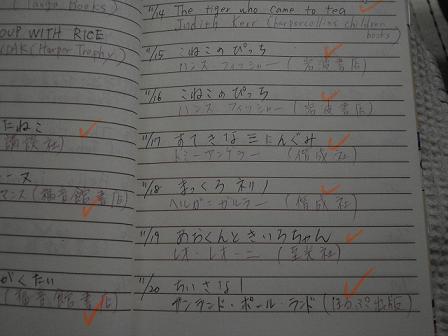 (Tango Books)
OUP WITH RICE
DAK (Harper Trophy)
たねこ
ース
マンス (福音館書店)
がくたい
(福音館書店)
11/14 The tiger who came to tea
Judith Kerr (harpercollins children books)
11/15 こねこのぴっち
ハンス フィッシャー (岩波書店)
11/16 こねこのぴっち
ハンス フィッシャー (岩波書店)
11/17 すてきな三にんぐみ
トミー・アンゲラー (偕成社)
11/18 まっくろネリノ
ヘルガ・ガルラー (偕成社)
11/19 あおくんときいろちゃん
レオ・レオーニ (至光社)
11/20 ちいさな1
アン・ランド・ポール・ランド (ほるぷ出版)